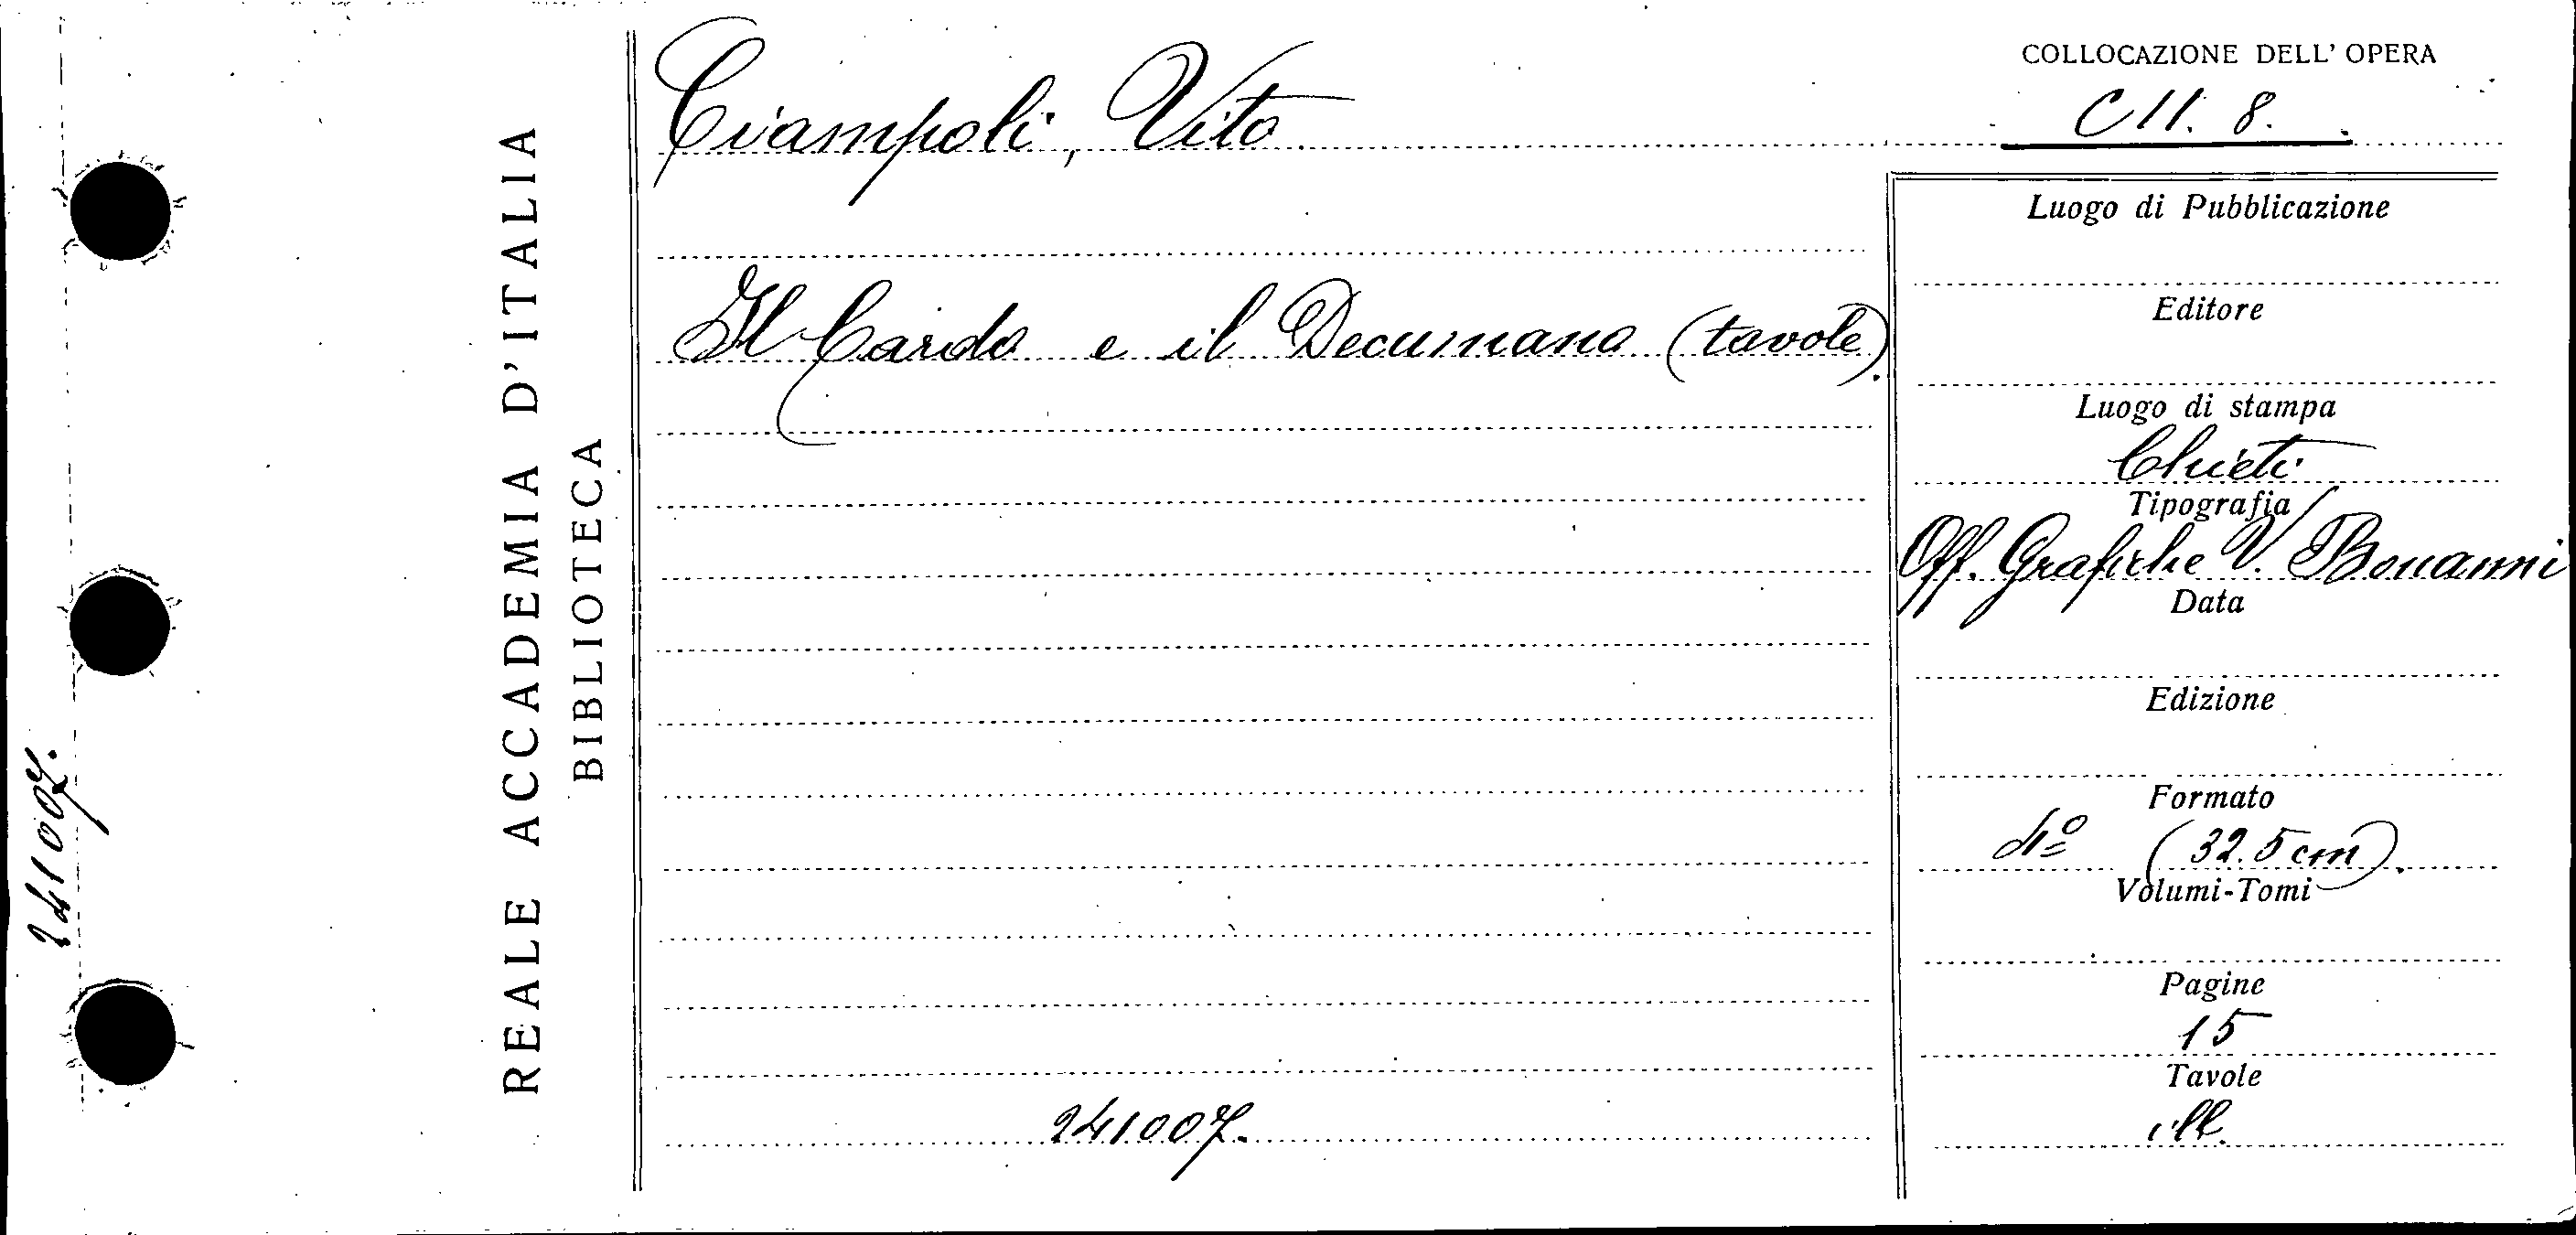 241007.
REALE ACCADEMIA D'ITALIA
BIBLIOTECA
Ciampoli, Vito
Il Cardo e il Decumano (tavole).
241007.
COLLOCAZIONE DELL' OPERA
C11. 8.
Luogo di Pubblicazione
Editore
Luogo di stampa
Chieti
Tipografia
Off. Grafiche V. Bonanni
Data
Edizione
Formato
4º (32.5 cm).
Volumi-Tomi
Pagine
15
Tavole
ill.